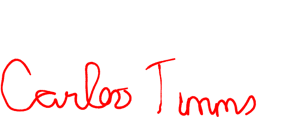 Carlos Timms